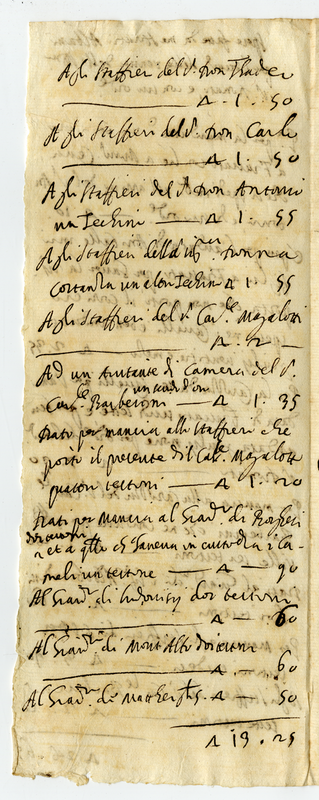 Agli staffieri del S. Don Thadeo
A. 1. 50
Agli staffieri del S. Don Carlo
A 1. 50
Agli staffieri del S. Don Antonio
un zechino — A 1. 55
Agli staffieri della Donna
Costanza un altro zechin A 1. 55
Agli staffieri del S. Car.le Magalotti
A. 2 —
Ad un Aiutante di Camera del S.
Car.le Barberini — A 1. 35
Dati per mancia alli staffieri che
portò il presente del Car.le Magalotti
quatro testoni — A 1. 20
Dati per Mancia al Giard.re di
doi testoni
et a q.llo che teneva in custodia i
un testone — A — 90
Al Giard.re di doi testoni
A — 60
Al Giard.re di Mont Alto doi testoni
A — 60
Al Giard.re di Matthei A — 50
A 19. 25